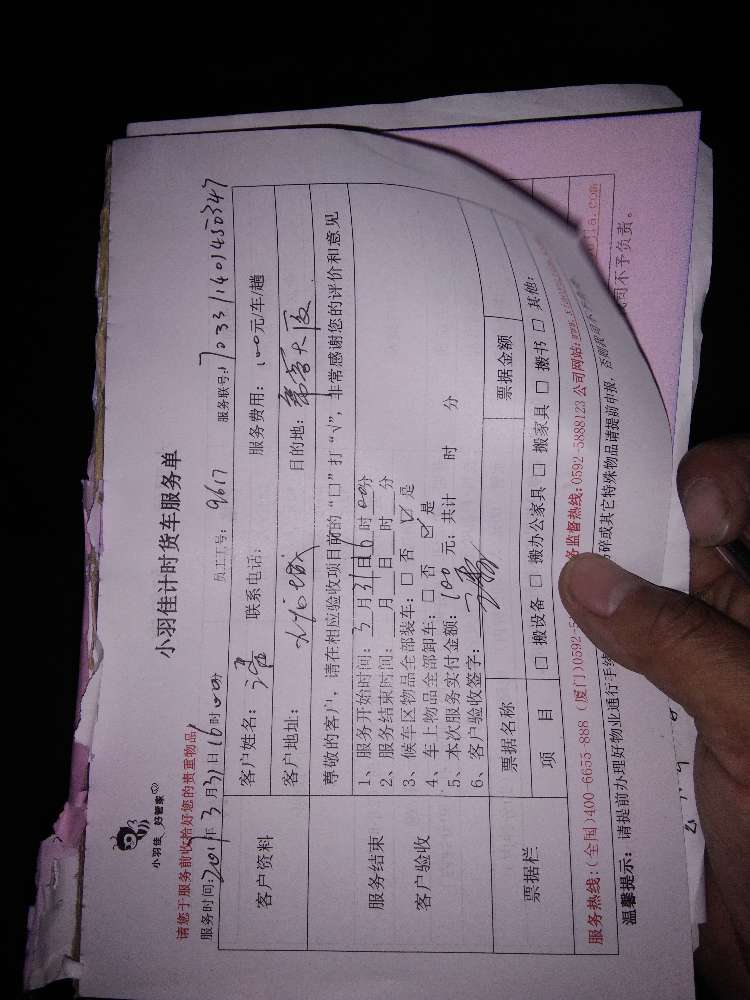 小羽佳 好管家
小羽佳计时货车服务单
请您于服务前收拾好您的贵重物品
服务时间:2017年3月31日16时00分 员工工号: 9617 服务联号: 7033/1401450347
客户资料
客户姓名: 联系电话: 服务费用: 100元/车/趟
客户地址: 目的地: 大厦
服务结束
客户验收
尊敬的客户，请在相应验收项目前的“□”打“√”，非常感谢您的评价和意见
1、服务开始时间: 3月31日16时00分
2、服务结束时间: 月 日 时 分
3、候车区物品全部装车: □ 否 ☑ 是
4、车上物品全部卸车: □ 否 ☑ 是
5、本次服务实付金额: 100 元; 共计 时 分
6、客户验收签字:
票据栏
票据名称 票据金额
项 目 □ 搬设备 □ 搬办公家具 □ 搬家具 □ 搬书 □ 其他:
服务热线: (全国)400-6655-888 (厦门)0592-5 务监督热线:0592-5888123 公司网站:
温馨提示: 请提前办理好物业通行手续 易碎或其它特殊物品请提前申报, 否则我司不予负责。
司不予负责。